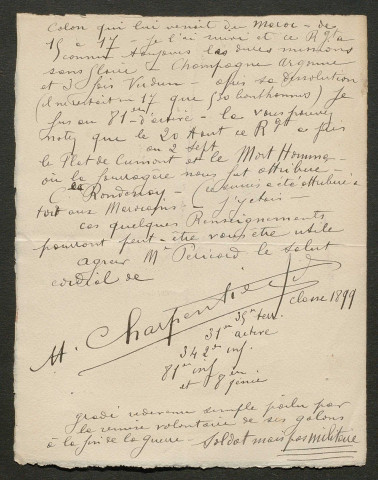 Colon qui lui venait du Maroc - de
15 à 17 - je l'ai suivi et ce Rgt a
connu toujours les dures missions
sans gloire - Champagne Argonne
et 3 fois Verdun - après sa dissolution
(il ne restait en 17 que 30 bonshommes) Je
fus au 81e d'active - là vous pouvez
noter que le 20 Aout ce Rgt a pris
au 2 sept
le Plat de Cumont et le Mort Homme -
où la fourragère nous fut attribuée -
a été attribué à
tort aux Marocains - j'y étais -
ces quelques Renseignements
pourront peut-être vous être utile
agréer Mr Péricard le salut
cordial de
M. Charpentier
classe 1899
35e terr.
31e active
342e inf.
81e inf
et 8 génie
gradé redevenu simple poilu par
la remise volontaire de ses galons
à la fin de la guerre - Soldat mais pas militaire